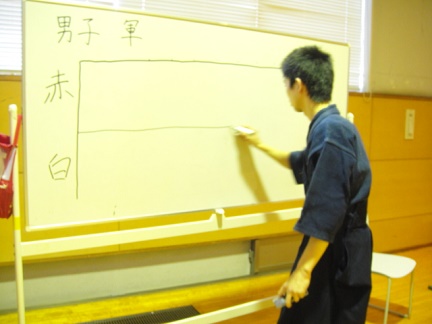 男子 軍
赤
白